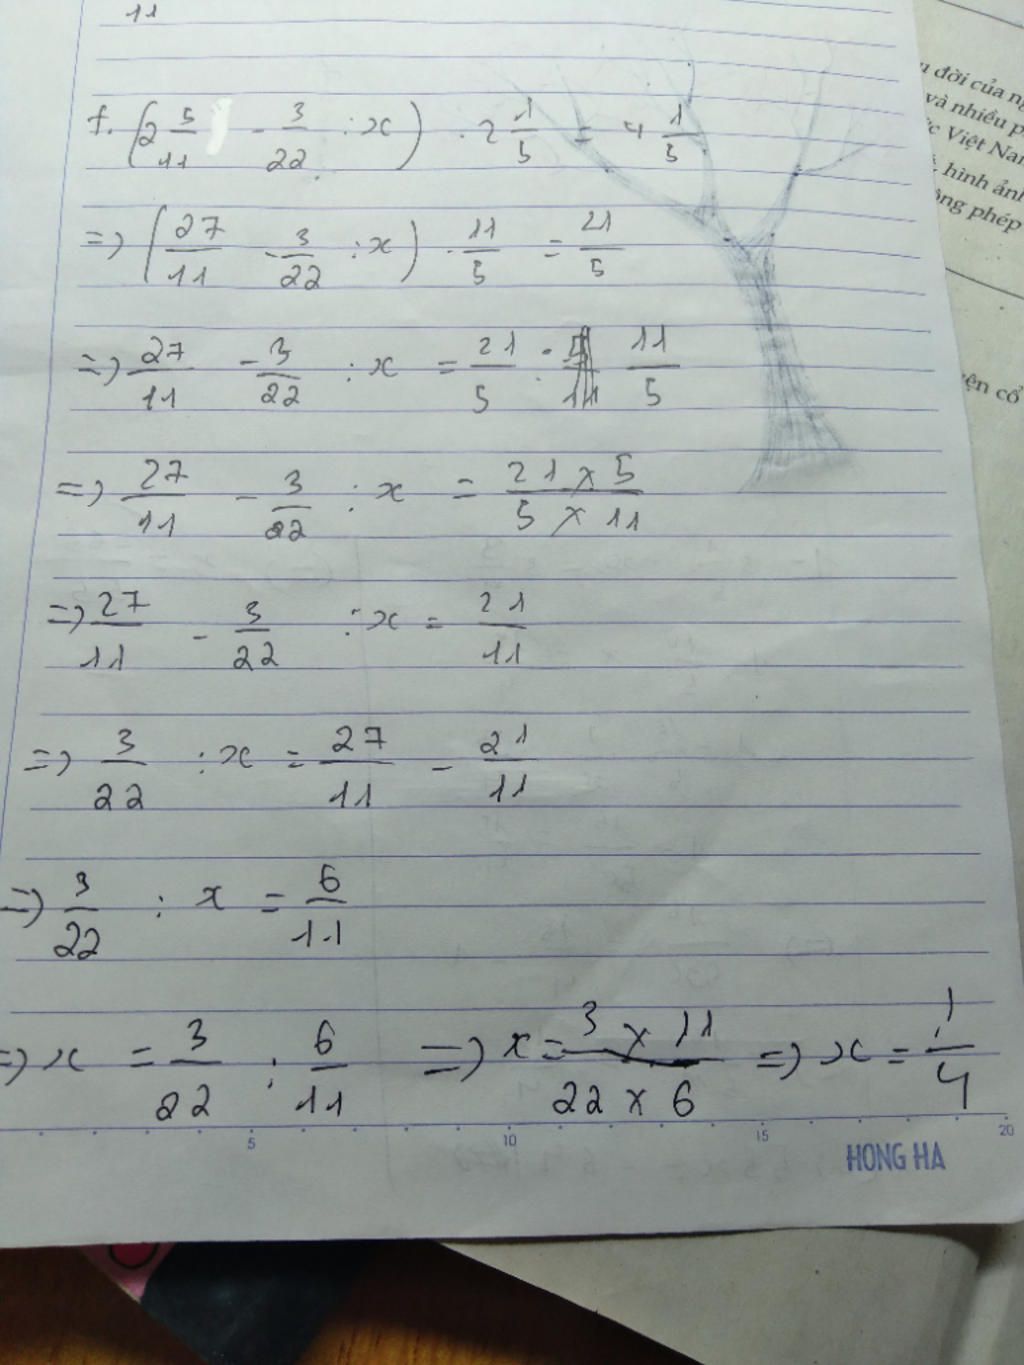 11
f. (2 5/11 - 3/22 : x) . 2 1/5 = 4 1/5
=> (27/11 - 3/22 : x) . 11/5 = 21/5
=> 27/11 - 3/22 : x = 21/5 : 11/5
=> 27/11 - 3/22 : x = 21 x 5/5 x 11
=> 27/11 - 3/22 : x = 21/11
=> 3/22 : x = 27/11 - 21/11
=> 3/22 : x = 6/11
=> x = 3/22 : 6/11 => x = 3 x 11/22 x 6 => x = 1/4
5 10 15 20
HONG HA
đời của
và nhiều
Việt Nam
hình ảnh
phép
cổ